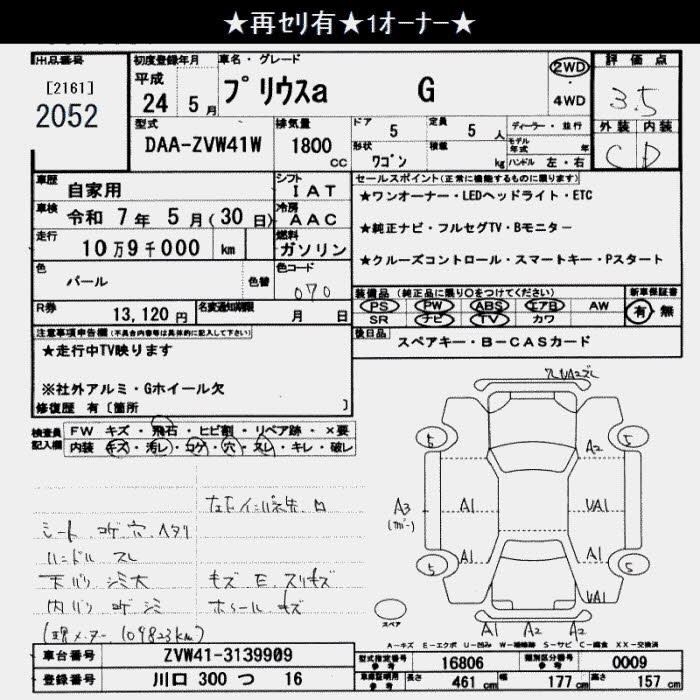 ★再ｾﾘ有★1ｵｰﾅｰ★
出品番号
[2161]
2052
初度登録年月
平成
24 5月
車名・グレード
プリウスa G
2WD
・
4WD
評価点
3.5
外装 内装
C D
型式
DAA-ZVW41W
排気量
1800
CC
ドア 5
定員 5 人
形状 ワゴン
積載 kg
ディーラー・並行
モデル年式 年
ハンドル 左・右
車歴 自家用
車検 令和 7年 5月(30日)
走行 10万9千000 km
色 パール
色替
シフト IAT
冷房 AAC
燃料 ガソリン
色コード 070
セールスポイント(正常に機能するものに限ります)
★ワンオーナー・LEDヘッドライト・ETC
★純正ナビ・フルセグTV・Bモニター
★クルーズコントロール・スマートキー・Pスタート
R券 13,120円
名変通知期限 月 日
装備品 (純正品に限り○をつけてください)
PS PW ABS エアB AW
SR ナビ TV カワ
新車保証書
有・無
後日品
スペアキー・B-CASカード
注意事項申告欄(不具合内容等は具体的に記入して下さい)
★走行中TV映ります
※社外アルミ・Gホイール欠
修復歴 有〔箇所 〕
検査員記入欄
FW キズ・飛石・ヒビ割・リペア跡・×要
内装 キズ・汚レ・コゲ・穴・スレ・キレ・破レ
シート コゲ 穴 ヘタリ
ハンドル スレ
天バリ シミ大
内バリ コゲ シミ
キズ E スリキズ
ホイール キズ
(109823km)
5
5
5
5
A2
A3
A1
UA1
A1
A1
UA1
A1 A2 A2
スペア
A-キズ E-エクボ U-凹み W-補修跡 S-サビ C-腐食 XX-交換済
車台番号 ZVW41-3139909
登録番号 川口 300 つ 16
型式指定番号 参考 16806
類別区分番号 参考 0009
車庫証明用 参考
長さ 461 cm
幅 177 cm
高さ 157 cm